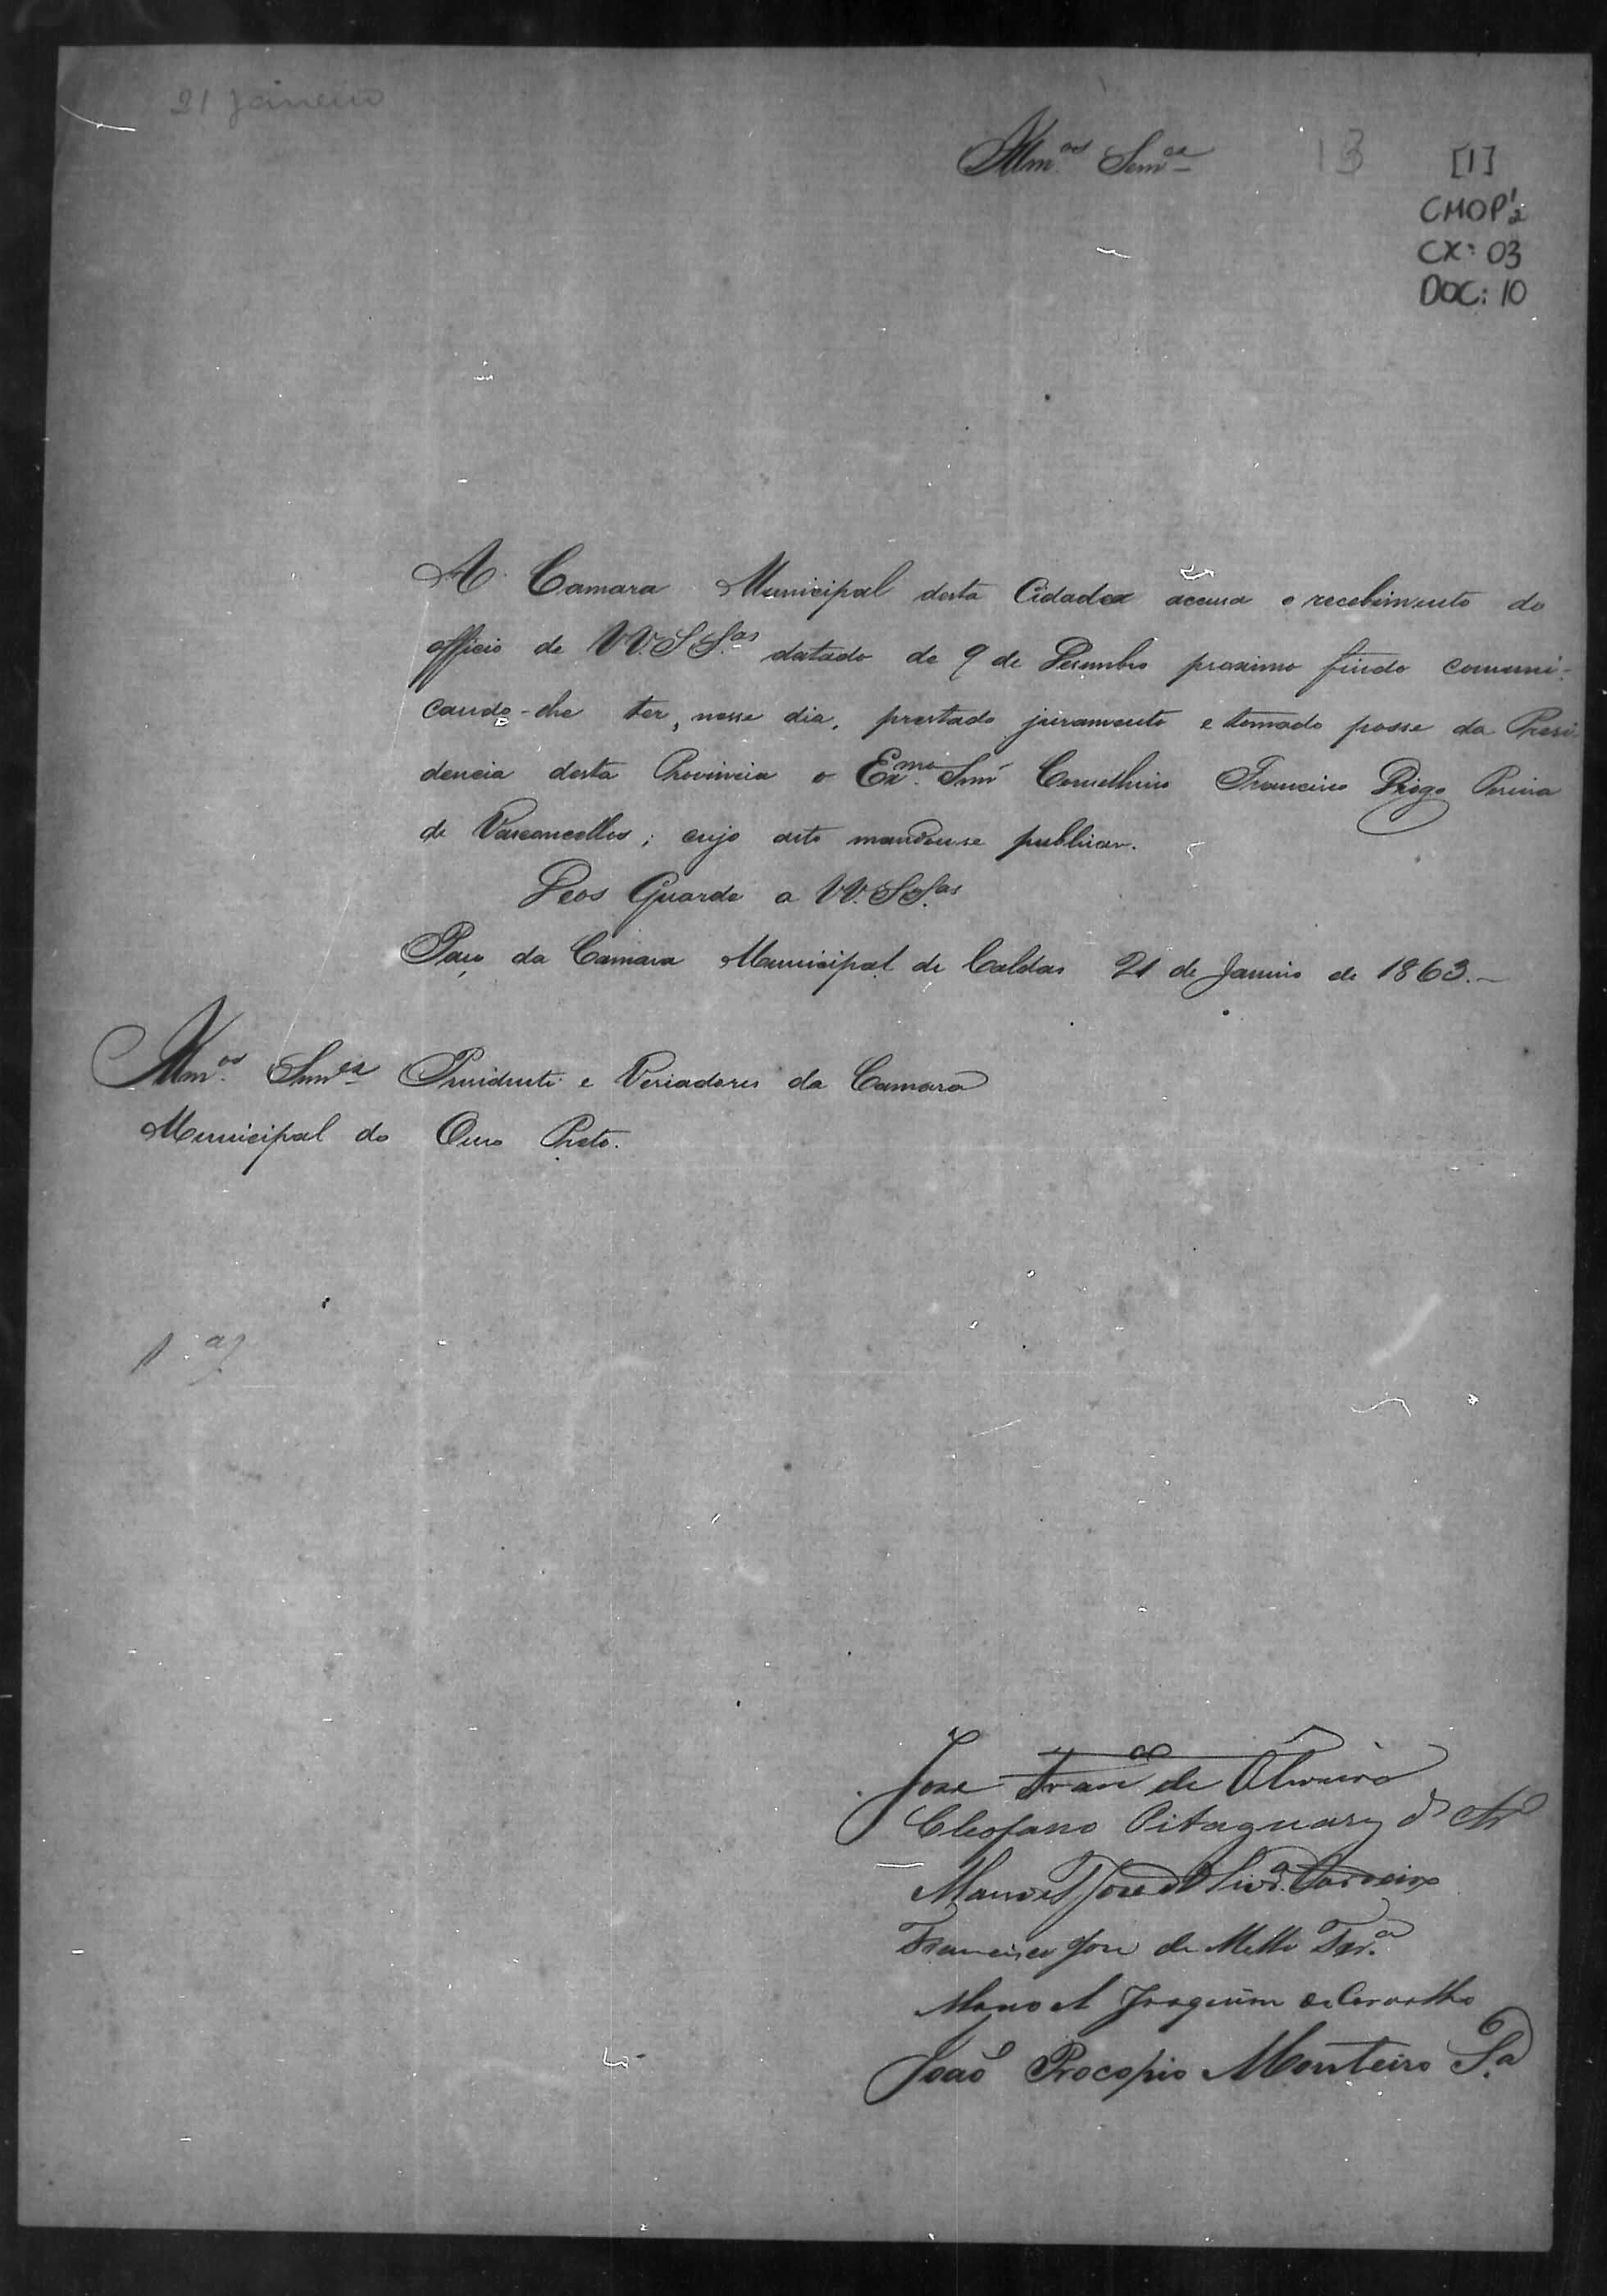 21 Janeiro
Illm.os Snr.es
13
[1]
CMOP 1/2
CX: 03
DOC: 10
A Camara Municipal desta Cidade accusa o recebimento do
officio de VV. SS.as datado de 9 de Desembro proximo findo communi-
cando-lhe ter, nesse dia, prestado juramento e tomado posse da Presi-
dencia desta Provincia o Ex.mo Snr. Conselheiro Francisco Diogo Pereira
de Vasconcellos; cujo acto mandou-se publicar.
Deos Guarde a VV. SS.as
Paço da Camara Municipal de Caldas 21 de Janeiro de 1863.
Illm.os Snr.es Presidente e Veriadores da Camara
Municipal do Ouro Preto.
Jose Fran.co de Oliveira
Cleofano Pitaguary d
Manoel Jose
Francisco Jose de Mello
Manoel Joaquim de Carvalho
João Procopio Monteiro